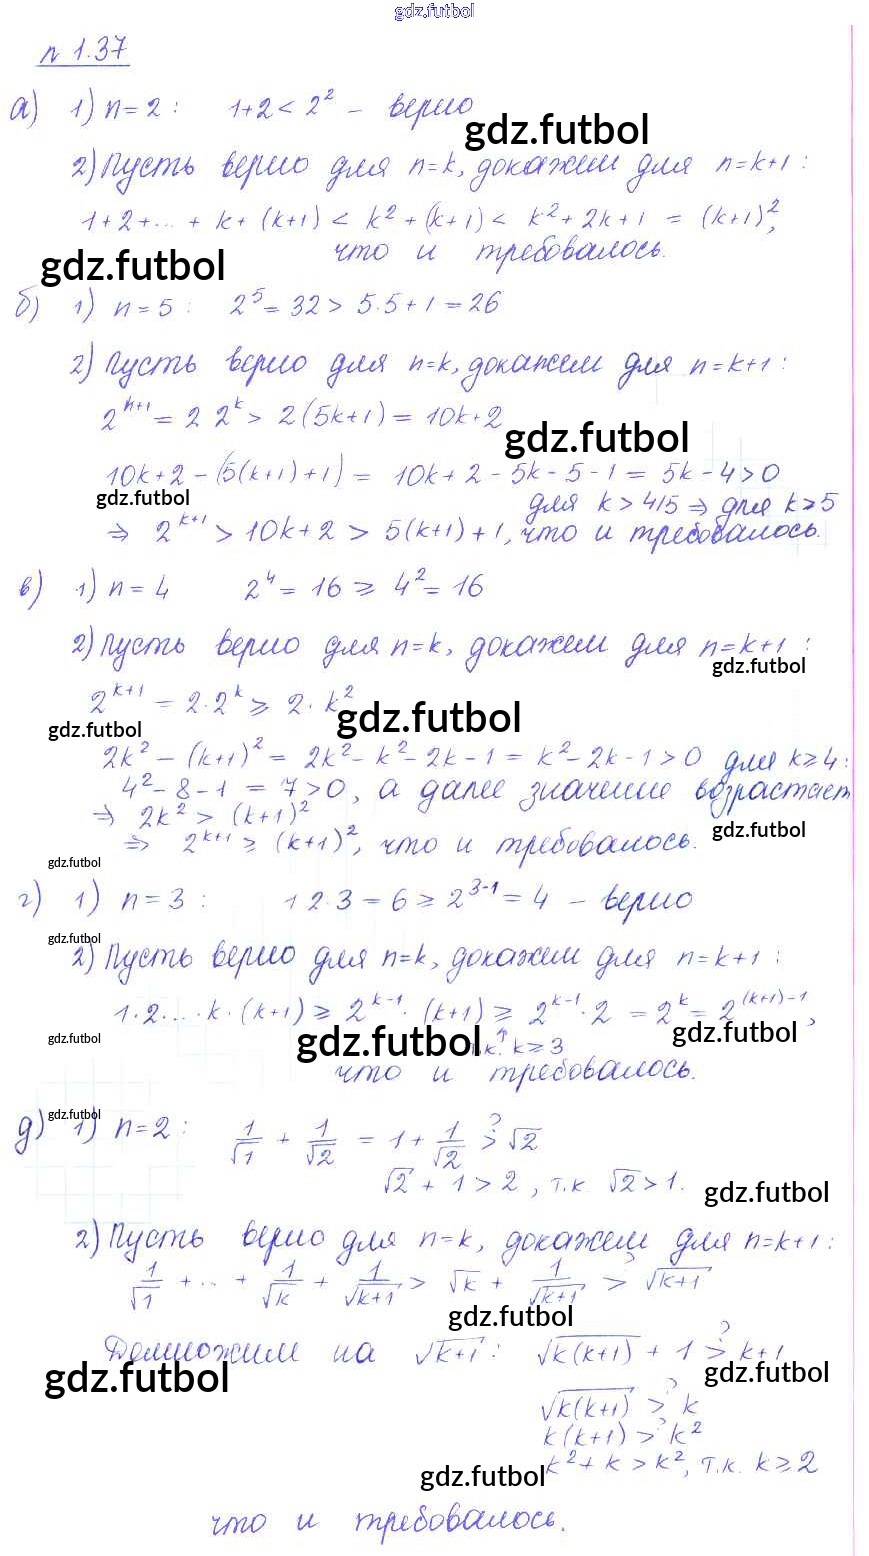 gdz.futbol
n 1.37
а) 1) n=2 : 1+2 < 2² – верно
gdz.futbol
2) Пусть верно для n=k, докажем для n=k+1 :
1+2+...+k+(k+1) < k²+(k+1) < k²+2k+1 = (k+1)²,
что и требовалось.
gdz.futbol
б) 1) n=5 : 2⁵=32 > 5·5+1=26
2) Пусть верно для n=k, докажем для n=k+1 :
2ⁿ⁺¹ = 2 2ᵏ > 2(5k+1) = 10k+2
gdz.futbol
10k+2 – (5(k+1)+1) = 10k+2-5k-5-1 = 5k-4>0
gdz.futbol
для k > 4/5 ⇒ для k ≥ 5
⇒ 2ᵏ⁺¹ > 10k+2 > 5(k+1)+1, что и требовалось.
в) 1) n=4 2⁴=16 ≥ 4²=16
2) Пусть верно для n=k, докажем для n=k+1 :
gdz.futbol
2ᵏ⁺¹ = 2·2ᵏ ≥ 2·k²
gdz.futbol
gdz.futbol
2k² – (k+1)² = 2k²-k²-2k-1 = k²-2k-1 > 0 для k≥4:
4²-8-1 = 7>0, а далее значение возрастает
⇒ 2k² > (k+1)²
gdz.futbol
⇒ 2ᵏ⁺¹ ≥ (k+1)², что и требовалось.
gdz.futbol
г) 1) n=3 : 1 2·3 = 6 ≥ 2³⁻¹ = 4 – верно
gdz.futbol
2) Пусть верно для n=k, докажем для n=k+1 :
1·2...·k·(k+1) ≥ 2ᵏ⁻¹·(k+1) ≥ 2ᵏ⁻¹·2 = 2ᵏ = 2⁽ᵏ⁺¹⁾⁻¹,
gdz.futbol
gdz.futbol
gdz.futbol
т.к. ↑ k≥3
что и требовалось.
gdz.futbol
д) 1) n=2 : 1/√1 + 1/√2 = 1 + 1/√2 >? √2
√2 + 1 > 2, т.к √2 > 1.
gdz.futbol
2) Пусть верно для n=k, докажем для n=k+1 :
1/√1 + ... + 1/√k + 1/√(k+1) > √k + 1/√(k+1) >? √(k+1)
gdz.futbol
Домножим на √(k+1) : √(k(k+1)) + 1 >? k+1
gdz.futbol
gdz.futbol
√(k(k+1)) >? k
k(k+1) >? k²
k²+k > k², т.к. k≥2
gdz.futbol
что и требовалось.